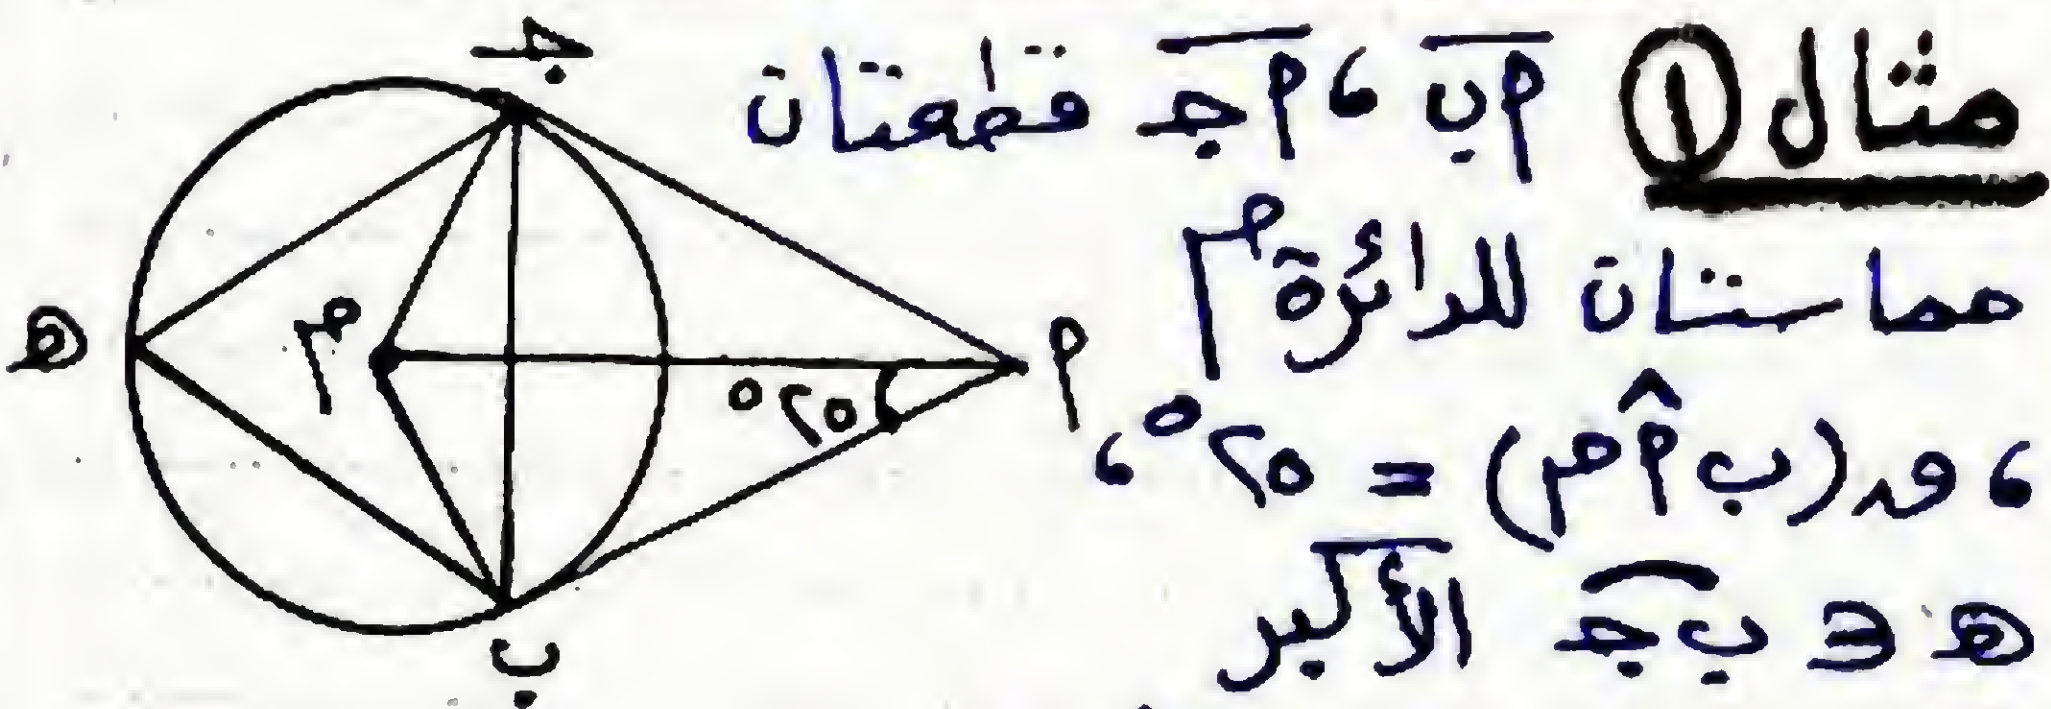 مثال ① أب ، أجـ قطعتان
مماستان للدائرة م
، ق(ب أ م) = ٢٥° ،
هـ ∈ ب جـ الأكبر
جـ
هـ
م
٢٥°
أ
ب